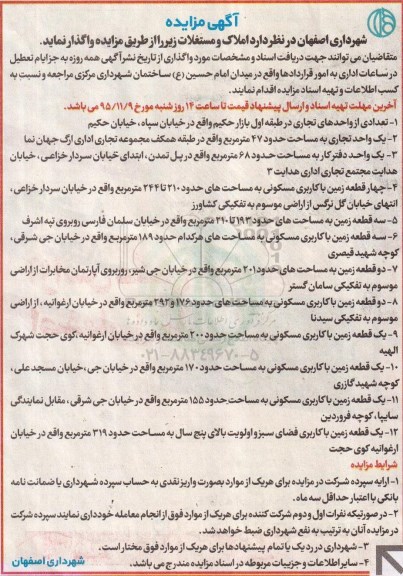 آگهی مزایده
شهرداری اصفهان در نظر دارد املاک و مستغلات زیر را از طریق مزایده واگذار نماید.
متقاضیان می توانند جهت دریافت اسناد و مشخصات مورد واگذاری از تاریخ نشر آگهی همه روزه به جز ایام تعطیل
در ساعات اداری به امور قراردادها واقع در میدان امام حسین (ع) ساختمان شهرداری مرکزی مراجعه و نسبت به
کسب اطلاعات و تهیه اسناد مزایده اقدام نمایند.
آخرین مهلت تهیه اسناد و ارسال پیشنهاد قیمت تا ساعت ۱۴ روز شنبه مورخ ۹۵/۱۱/۹ می باشد.
۱- تعدادی از واحدهای تجاری در طبقه اول بازار حکیم واقع در خیابان سپاه، خیابان حکیم
۲- یک واحد تجاری به مساحت حدود ۴۷ مترمربع واقع در طبقه همکف مجموعه تجاری اداری ارگ جهان نما
۳- یک واحد دفتر کار به مساحت حدود ۶۸ مترمربع واقع در پل تمدن، ابتدای خیابان سردار خزاعی، خیابان
هدایت مجتمع تجاری اداری هدایت ۳
۴- چهار قطعه زمین با کاربری مسکونی به مساحت های حدود ۲۱۰ تا ۲۴۴ مترمربع واقع در خیابان سردار خزاعی،
انتهای خیابان گل نرگس از اراضی موسوم به تفکیکی کشاورز
۵- سه قطعه زمین به مساحت های حدود ۱۹۳ تا ۲۱۰ مترمربع واقع در خیابان سلمان فارسی روبروی تپه اشرف
۶- سه قطعه زمین با کاربری مسکونی به مساحت های هرکدام حدود ۱۸۹ مترمربع واقع در خیابان جی شرقی،
کوچه شهید قیصری
۷- دو قطعه زمین به مساحت های حدود ۲۰۱ مترمربع واقع در خیابان جی شیر، روبروی آپارتمان مخابرات از اراضی
موسوم به تفکیکی سامان گستر
۸- دو قطعه زمین با کاربری مسکونی به مساحت های حدود ۱۷۶ و ۲۹۲ مترمربع واقع در خیابان ارغوانیه، از اراضی
موسوم به تفکیکی سیدنا
۹- یک قطعه زمین با کاربری مسکونی به مساحت حدود ۲۰۰ مترمربع واقع در خیابان ارغوانیه، کوی حجت شهرک
الهیه
۰۲۱-۸۸۳۴۹۶۷۰-۵
۱۰- یک قطعه زمین با کاربری مسکونی به مساحت حدود ۱۷۰ مترمربع واقع در خیابان جی، خیابان مسجد علی،
کوچه شهید گازری
۱۱- یک قطعه زمین با کاربری مسکونی به مساحت حدود ۱۵۵ مترمربع واقع در خیابان جی شرقی، مقابل نمایندگی
سایپا، کوچه فروردین
۱۲- یک قطعه زمین با کاربری فضای سبز و اولویت بالای پنج سال به مساحت حدود ۳۱۹ مترمربع واقع در خیابان
ارغوانیه کوی حجت
شرایط مزایده
۱- ارایه سپرده شرکت در مزایده برای هر یک از موارد بصورت واریز نقدی به حساب سپرده شهرداری یا ضمانت نامه
بانکی با اعتبار حداقل سه ماه.
۲- در صورتیکه نفرات اول و دوم شرکت کننده برای هر یک از موارد فوق از انجام معامله خودداری نمایند سپرده شرکت
در مزایده آنان به ترتیب به نفع شهرداری ضبط خواهد شد.
۳- شهرداری در رد یک یا تمام پیشنهادها برای هر یک از موارد فوق مختار است.
۴- سایر اطلاعات و جزییات مربوطه در اسناد مزایده مندرج می باشد.
شهرداری اصفهان